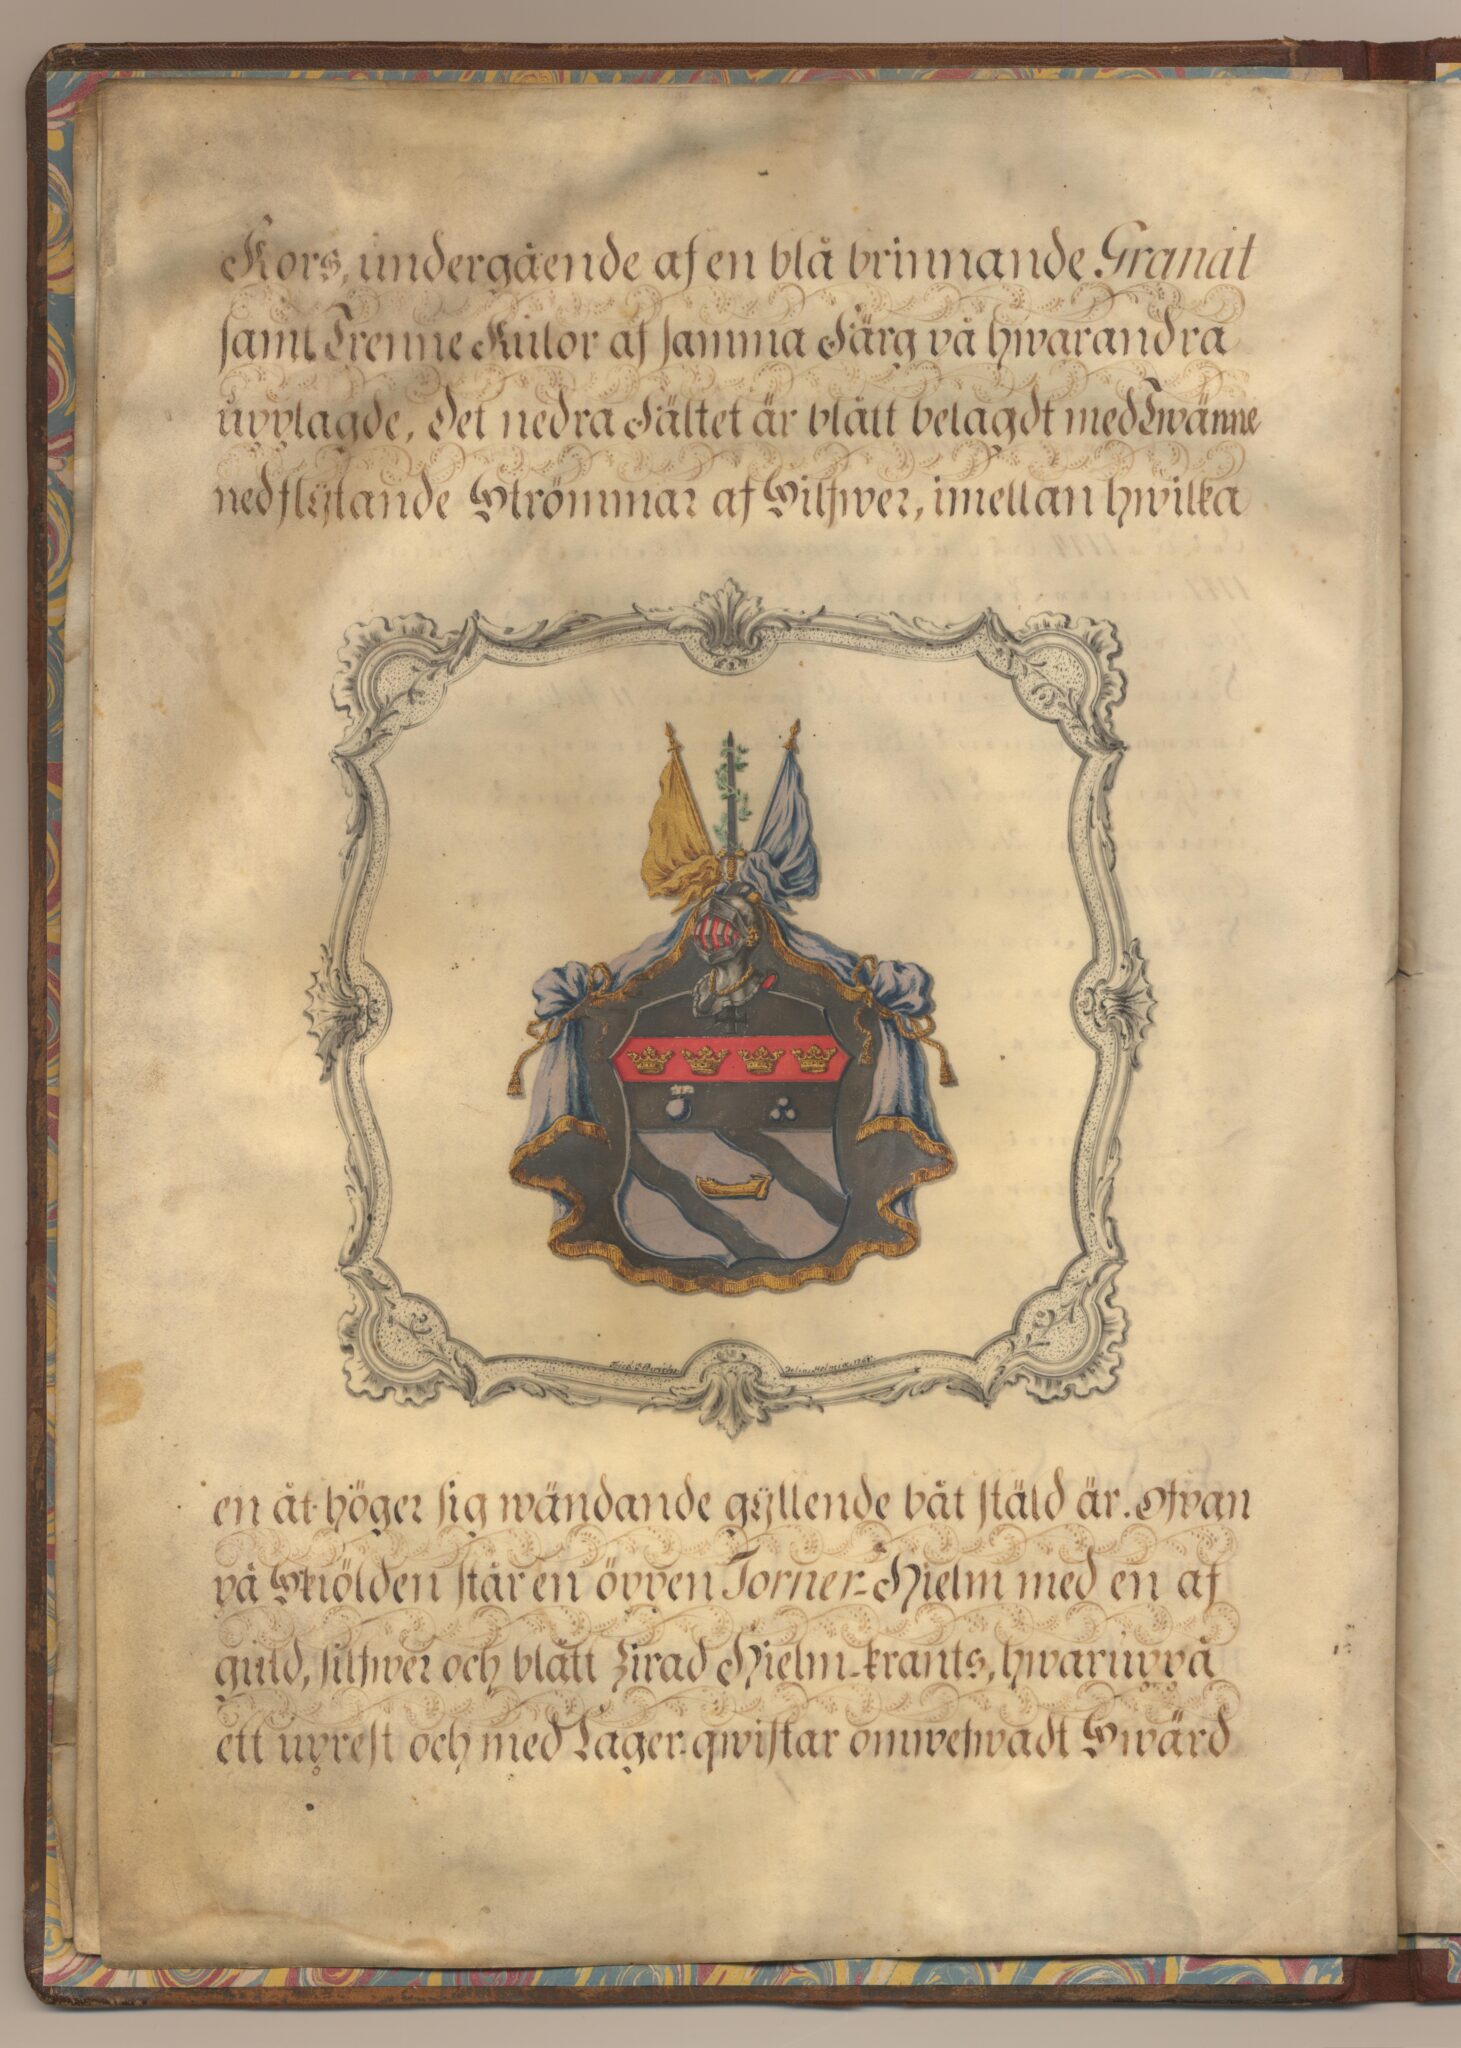 Kors, undergående af en blå brinnande Granat
samt Trenne Kulor af samma Färg på hwarandra
upplagde, Det nedra Fältet är blått belagdt med Twänne
nedflÿtande Strömmar af Silfwer, imellan hwilka
en åt höger sig wändande gÿllende båt stäld är. Ofvan
på Skiölden står en öppen Torner-Hielm med en af
guld, silfwer och blått Zirad Hielm-krants, hwaruppå
ett uprest och med Lager-qwistar omwefwadt Swärd